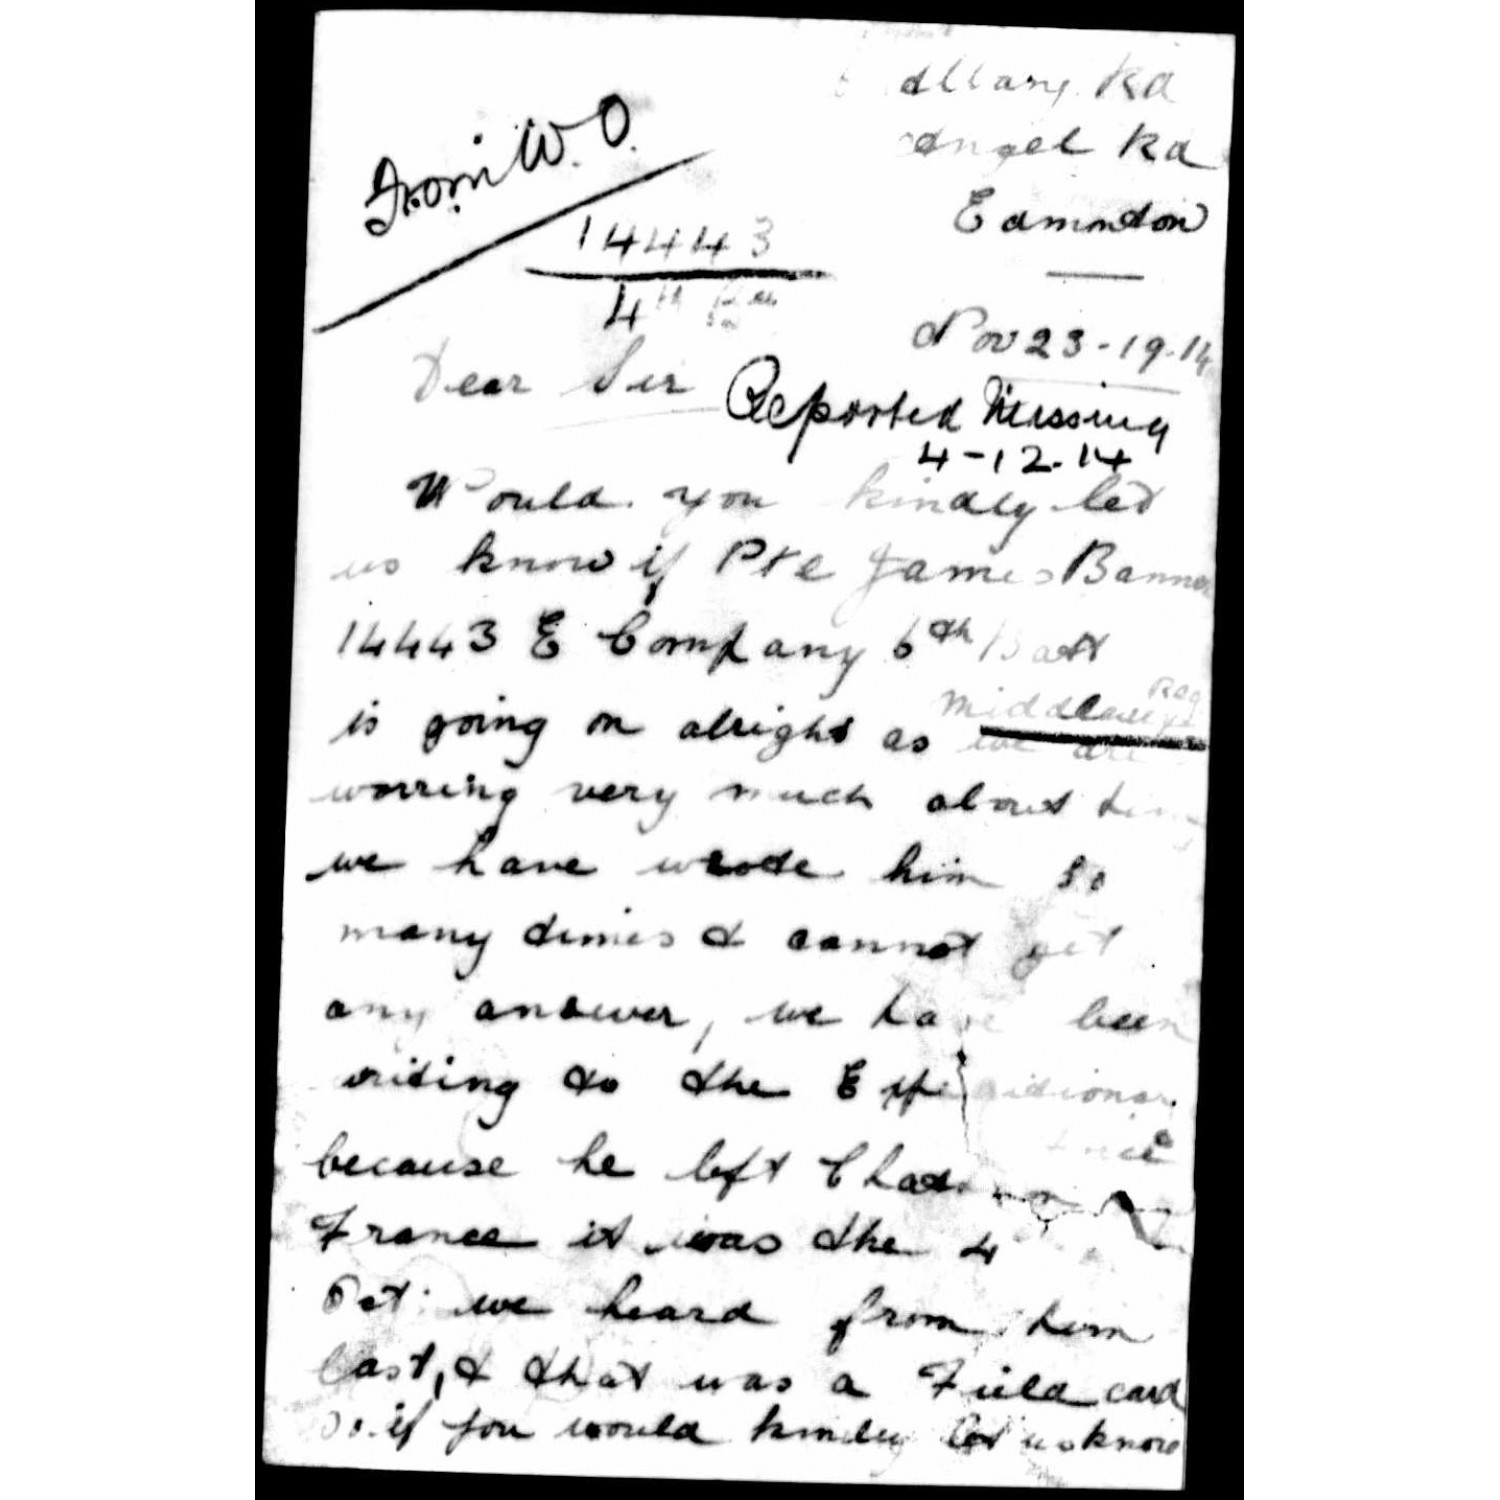 Rd
Angel Rd
Edmonton
From W.O.
14443
4th Bn
Nov 23-19.14
Dear Sir
Reported Missing
4-12.14
Would you kindly let
us know if Pte James Banner
14443 E Company 6th Batt
Middlesex Reg
is going on alright as we are
worring very much about him
we have wrote him so
many times & cannot get
any answer, we have been
writing to the
because he left
France it was the 4
Oct. we heard from him
last, & that was a Field card
so if you would kindly let us know